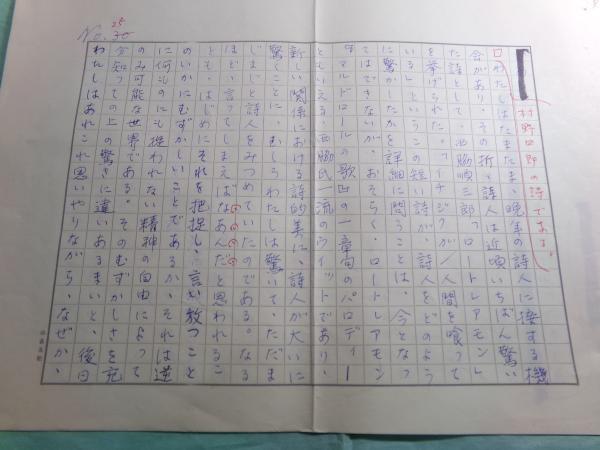 No. 25
村野四郎の詩である。
わたしはたまたま、晩年の詩人に接する機
会があり、その折、詩人は近頃いちばん驚い
た詩として、西脇順三郎「ロートレアモン
を挙げられた。
いる」という短い詩が、詩人をどのよう
に驚かせたか、詳細に問うことは、今となっ
てはできないが、おそらく、ロートレアモン
「マルドロールの歌」の一章句のパロディー
ともいえる、西脇氏一流のウィットであり、
新しい関係における詩的美に、詩人が大いに
驚くことに、むしろわたしは驚いて、ただま
じまじと詩人をみつめていたのである。
ほどに、言ってしまえばなあんだと思われるこ
とも、はじめにそれを把捉し、言い放つこと
のいかにむずかしいことであるか、それは逆
に何ものにも捉われない精神の自由によって
のみ可能な世界である。そのむずかしさを充
分知っての上の驚きに違いあるまいと、後日
わたしはあれこれ思いやりながら、なぜか、